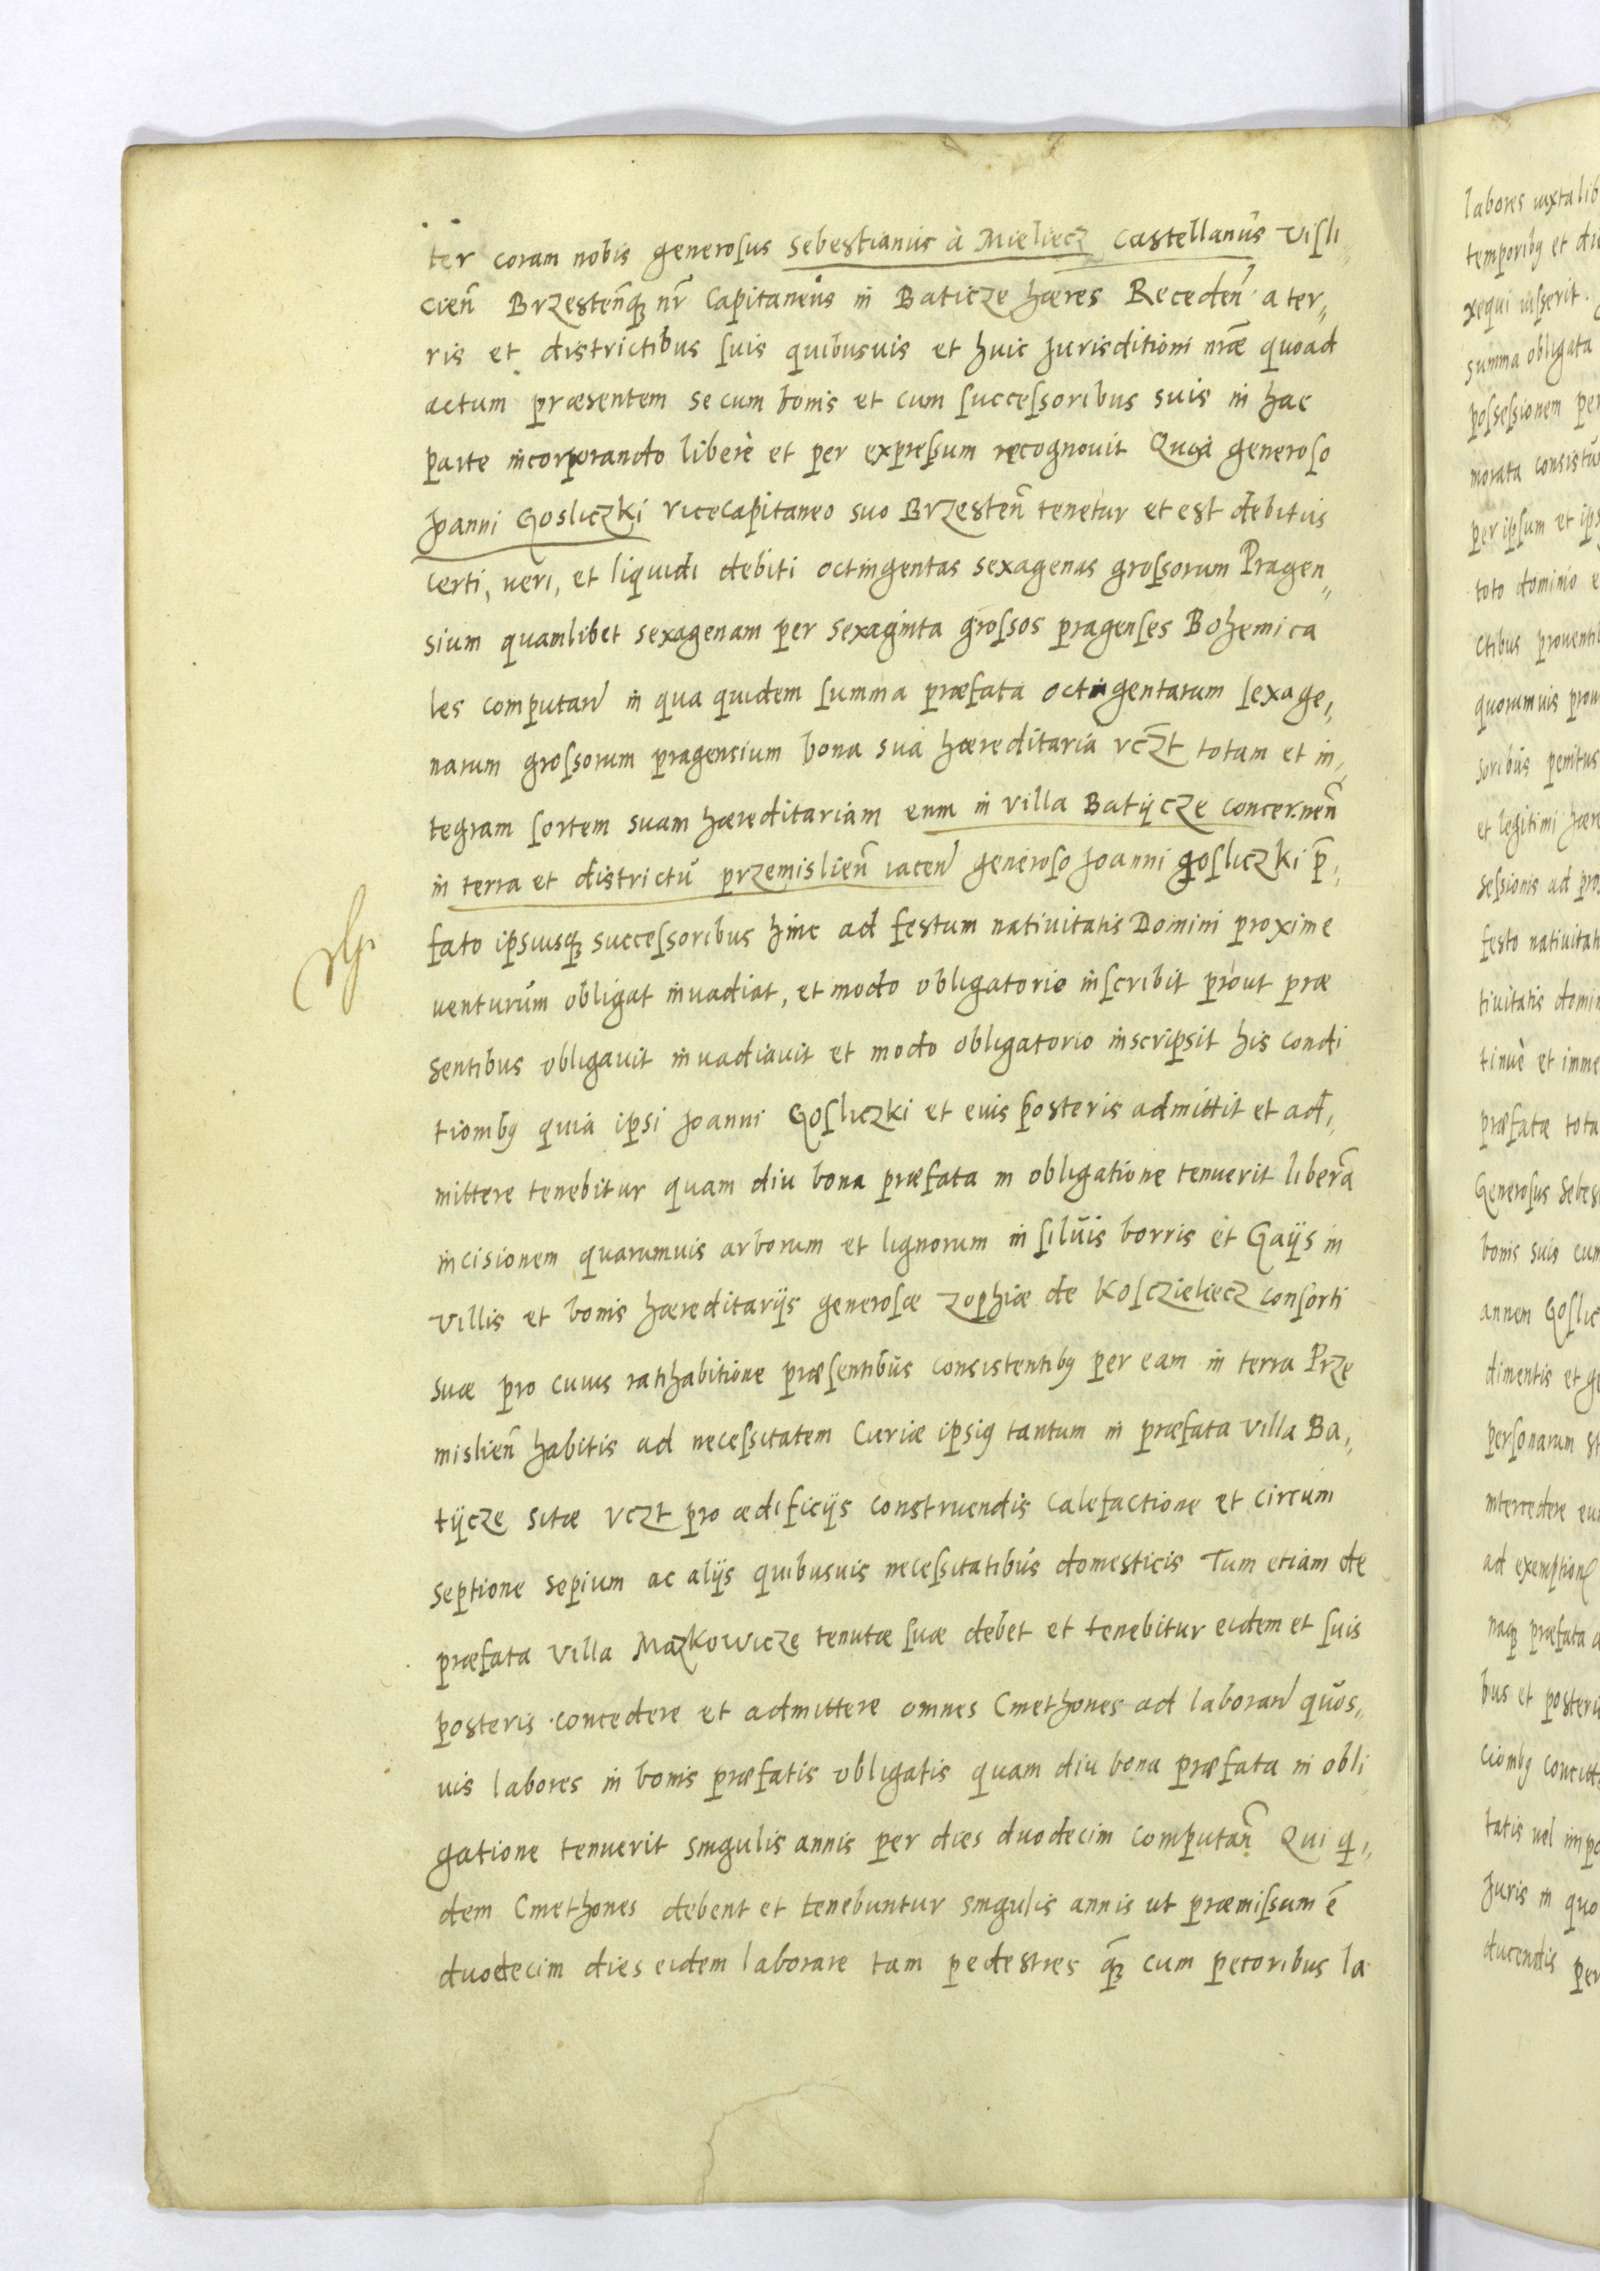 ter coram nobis generosus Sebestianus à Mieliecz Castellanus Visli„
cien̄ Brzesten̄q nr̄ Capitaneus in Baticze hæres Receden̄ a ter„
ris et districtibus suis quibusuis et huic Jurisditioni nr̄æ quoad
actum præsentem se cum bonis et cum successoribus suis in hac
parte incorporando liberè et per expressum recognouit Quia generoso
Joanni Gosliczki vicecapitaneo suo Brzesten̄ tenetur et est debitus
certi, veri, et liquidi debiti octingentas sexagenas grossorum Pragen„
sium quamlibet sexagenam per sexaginta grossos pragenses Bohemica
les computan̄ in qua quidem summa præfata octingentarum sexage„
narum grossorum pragensium bona sua hæreditaria vcz̄t totam et in„
tegram sortem suam hæreditariam eum in villa Batijcze concernen̄
in terra et districtu przemislien̄ iacen̄ generoso Joanni Gosliczki p̄„
fato ipsiusq successoribus hinc ad festum natiuitatis Domini proxime
venturum obligat inuadiat, et modo obligatorio inscribit prout præ
sentibus obligauit inuadiauit et modo obligatorio inscripsit his condi
tionibq quia ipsi Joanni Gosliczki et euis posteris admittit et ad„
mittere tenebitur quam diu bona præfata in obligatione tenuerit liberā
incisionem quarumuis arborum et lignorum in siluis borris et Gaijs in
villis et bonis hæreditarijs generosæ Zophiæ de Kosczieliecz consorti
suæ pro cuius ratihabitione præsentibus consistentibq per eam in terra Prze
mislien̄ habitis ad necessitatem Curiæ ipsiq tantum in præfata villa Ba„
tijcze sitæ vczt pro ædificijs construendis calefactione et circum
septione sepium ac alijs quibusuis necessitatibus domesticis Tum etiam de
præfata villa Mazkowicze tenutæ suæ debet et tenebitur eidem et suis
posteris concedere et admittere omnes Cmethones ad laboran̄ quos„
uis labores in bonis præfatis obligatis quam diu bona præfata in obli
gatione tenuerit singulis annis per dies duodecim computan̄ Qui q„
dem Cmethones debent et tenebuntur singulis annis ut præmissum ē
duodecim dies eidem laborare tam pedestres q̄ cum pecoribus la
labores iuxta lib
temporibq et di
xequi iusserit.
summa obligata
possessionem per
morata consistu
per ipsum et ips
toto dominio e
ctibus prouenti
quorumuis prou
soribus penitus
et legitimi hære
sessionis ad
festo natiuitati
tiuitatis domin
tinuè et imme
præfatæ tota
Generosus Sebes
bonis suis cum
annem Goslic
dimentis et ge
personarum st
intercedere eu
ad exemption
naq præfata a
bus et posteri
cionibq
tatis uel impe
Juris in quo
ducendis per